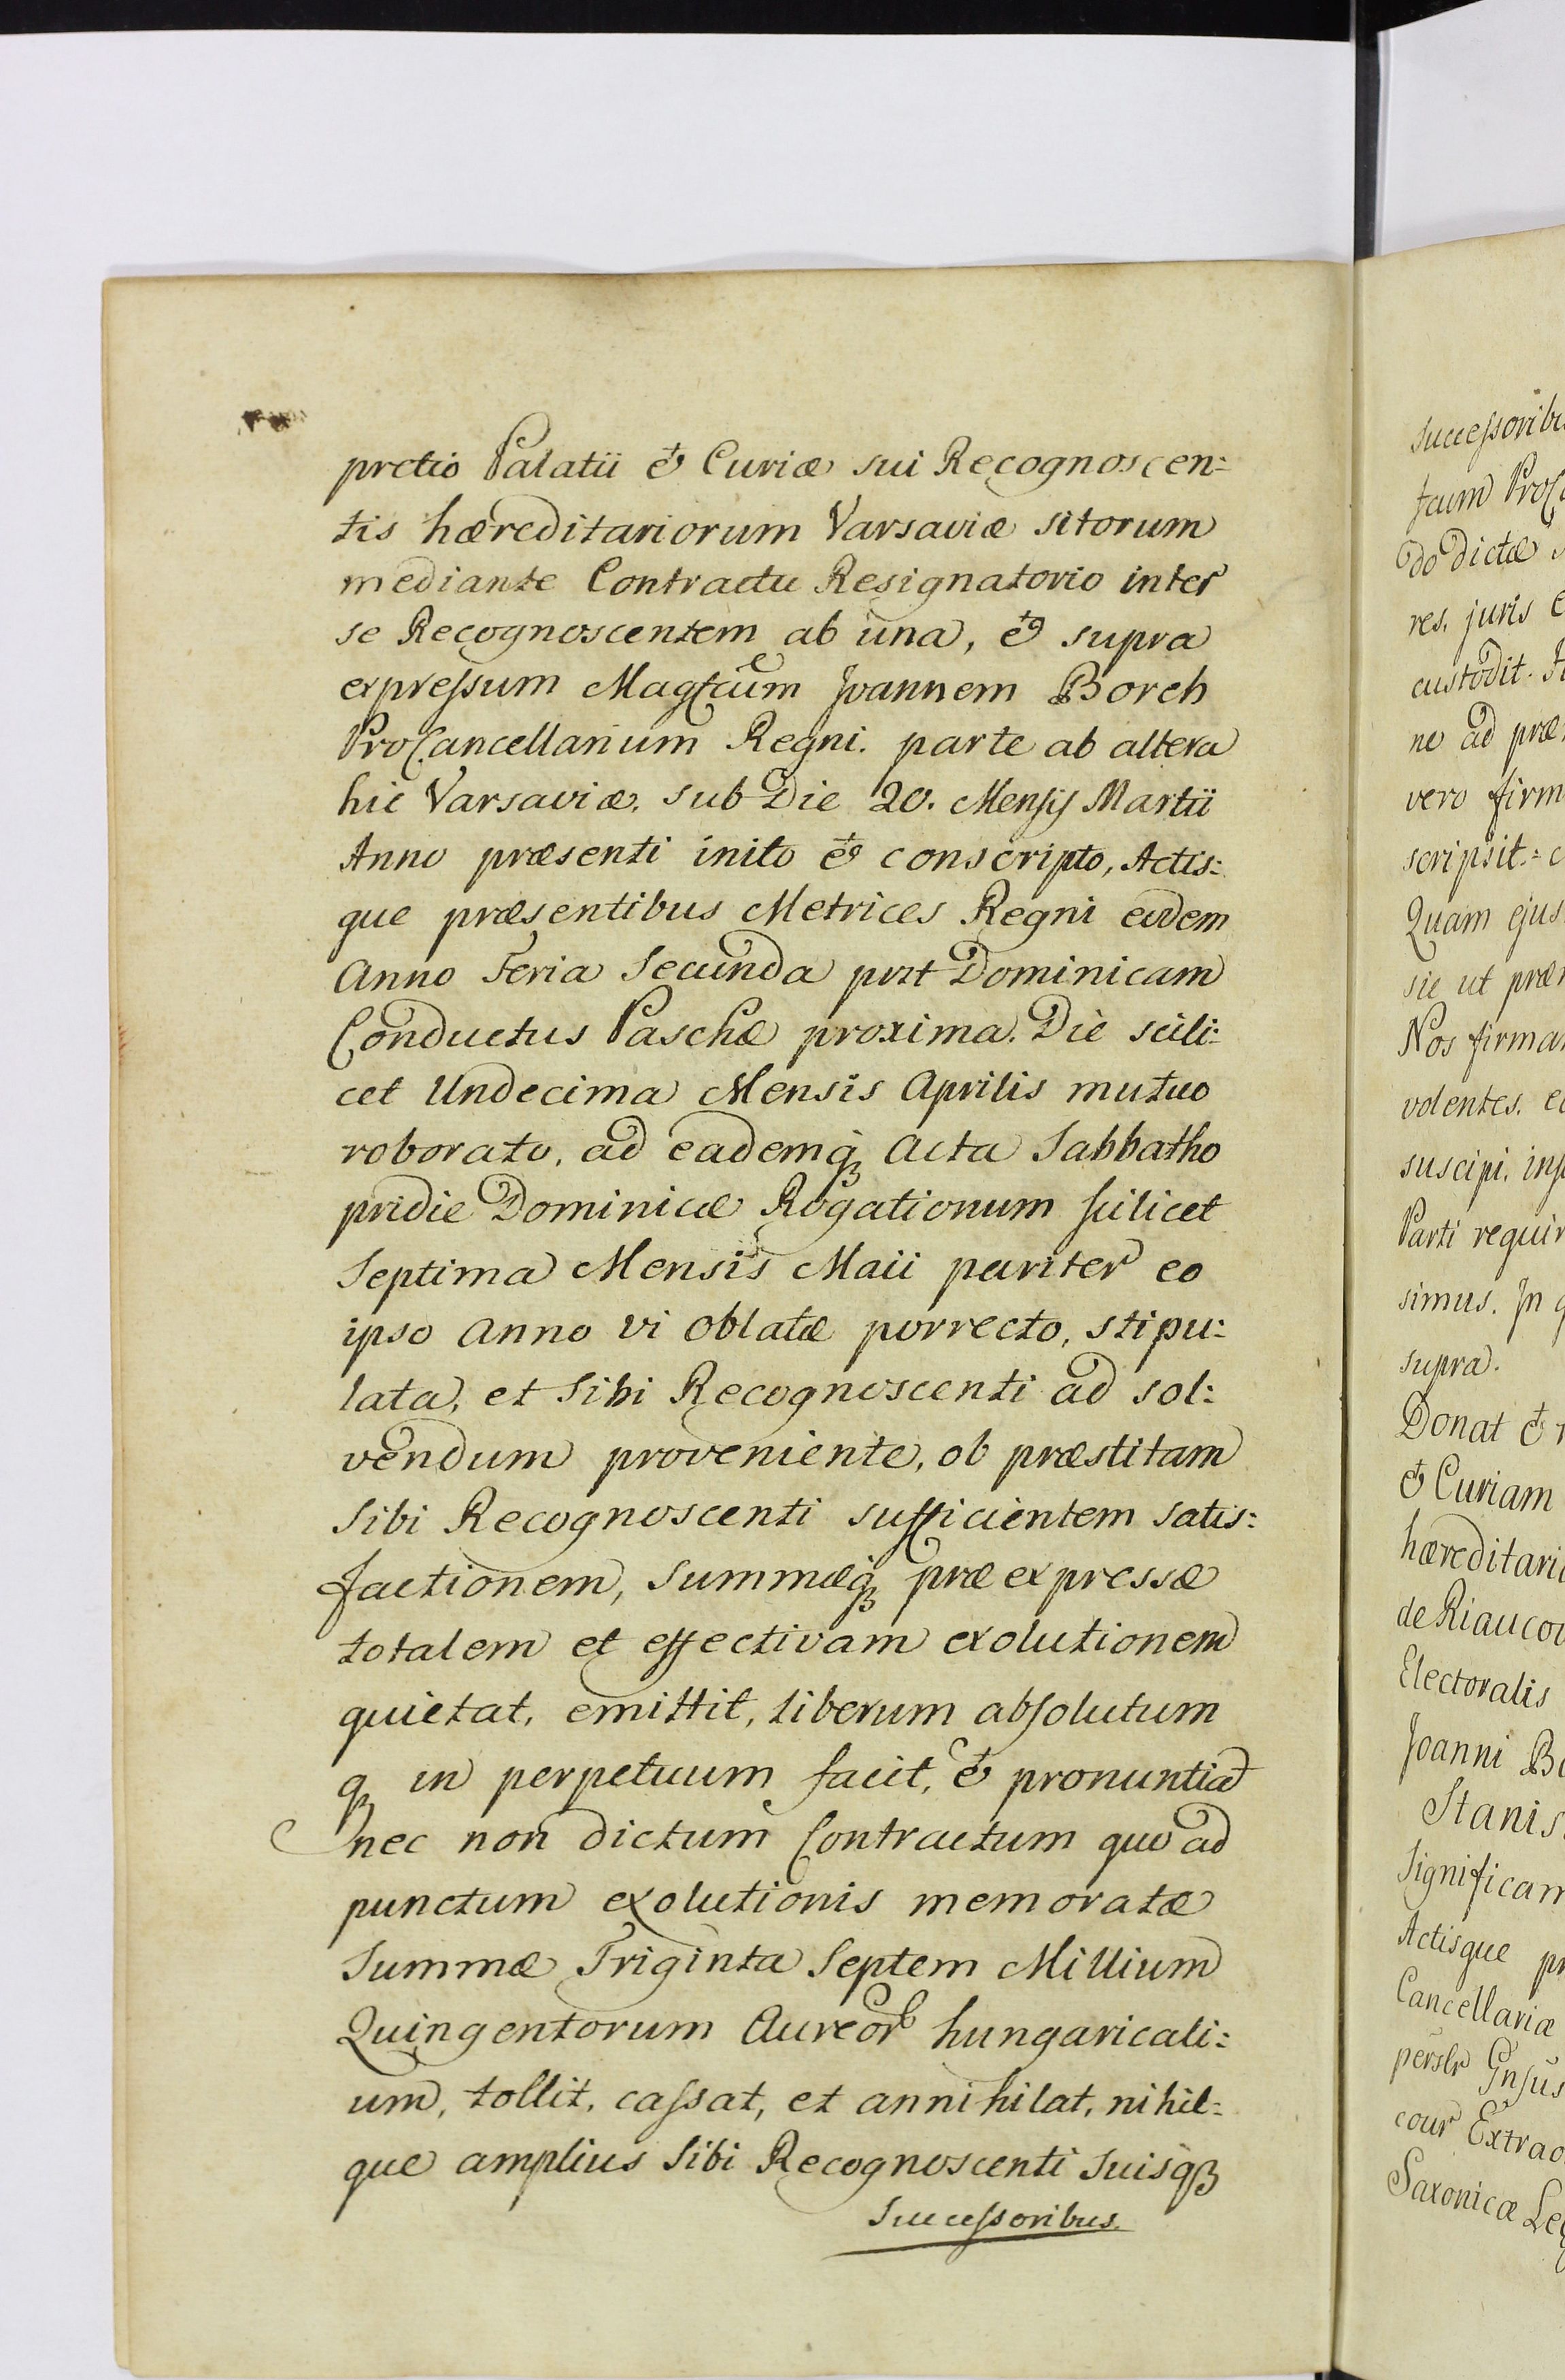 pretio Palatii & Curiæ sui Recognoscen:
tis hæreditariorum Varsaviæ sitorum
mediante Contractu Resignatorio inter
se Recognoscentem ab una, & supra
expressum Magfcum Joannem Borch
ProCancellarium Regni. parte ab altera
hic Varsaviæ. sub Die 20. Mensis Martii
Anno præsenti inito & conscripto, Actis:
que præsentibus Metrices Regni eodem
Anno Feria Secunda post Dominicam
Conductus Paschæ proxima. Die scili:
cet Undecima Mensis Aprilis mutuo
roborato, ad eademq́ꝫ Acta Sabbatho
pridie Dominicæ Rogationum scilicet
Septima Mensis Maii pariter eo
ipso Anno vi Oblatæ porrecto, stipu:
lata, et Sibi Recognoscenti ad sol:
vendum proveniente, ob præstitam
Sibi Recognoscenti sufficientem satis:
factionem, Summæq́ꝫ præexpressæ
totalem et effectivam exolutionem
quietat, emittit, liberum absolutum
qꝫ in perpetuum facit, & pronuntiat
nec non dictum Contractum quoad
punctum exolutionis memoratæ
Summæ Triginta Septem Millium
Quingentorum Aureor hungaricali:
um, tollit, cassat, et annihilat, nihil:
que amplius Sibi Recognoscenti Suisqꝫ
Successoribus.
successoribu
fcum ProC
do dictæ
res. juris
custodit.
ne ad præ
vero firm
scripsit:
Quam ejus
sic ut præ
Nos firma
volentes. e
suscipi. ins
Parti requir
simus. In q
supra.
Donat &
& Curiam
hæreditari
de Riaucou
Electoralis
Joanni Bo
Stanis
Significam
Actisque pr
Cancellariæ
perslr Gnsus
cour Extrao
Saxonicæ Leg